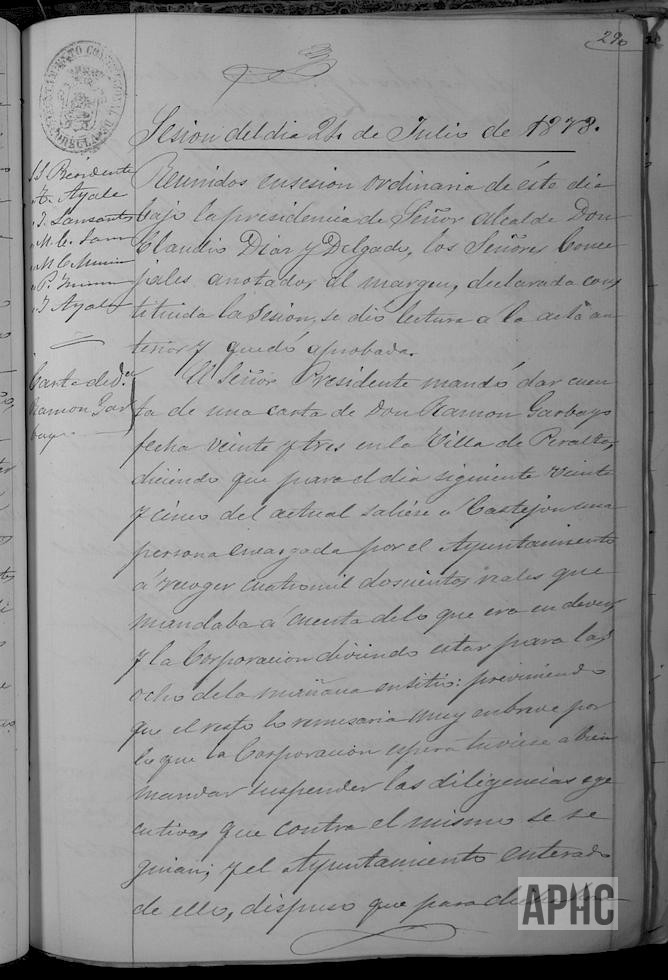 290
Sesion del dia 24 de Julio de 1878.
S. Presidente
Ayala
Ayala
Reunidos en sesion ordinaria de éste dia
bajo la presidencia de Señor Alcalde Don
Claudio Diaz y Delgado, los Señores Conce
jales anotados al margen, declarada cons
tituida la Sesion, se dió lectura á la acta an
terior y quedó aprobada.
Carta de Dn
Ramon Gar
bayo
El Señor Presidente mandó dar cuen
ta de una carta de Don Ramon Garbayo
fecha veinte y tres en la Villa de Peralta,
diciendo que para el dia siguiente veinte
y cinco del actual saliese á Castejon una
persona encargada por el Ayuntamiento
á recoger cuatro mil doscientos reales que
mandaba á cuenta de lo que era en dever
y la Corporacion diciendo estar para las
ocho de la mañana en sitio: previniendo
que el resto lo remesaria muy en breve por
lo que la Corporacion espera tuviese a bien
mandar suspender las diligencias ege
cutivas que contra el mismo se se
guian; y el Ayuntamiento enterado
de ello, dispuso que para
APHC